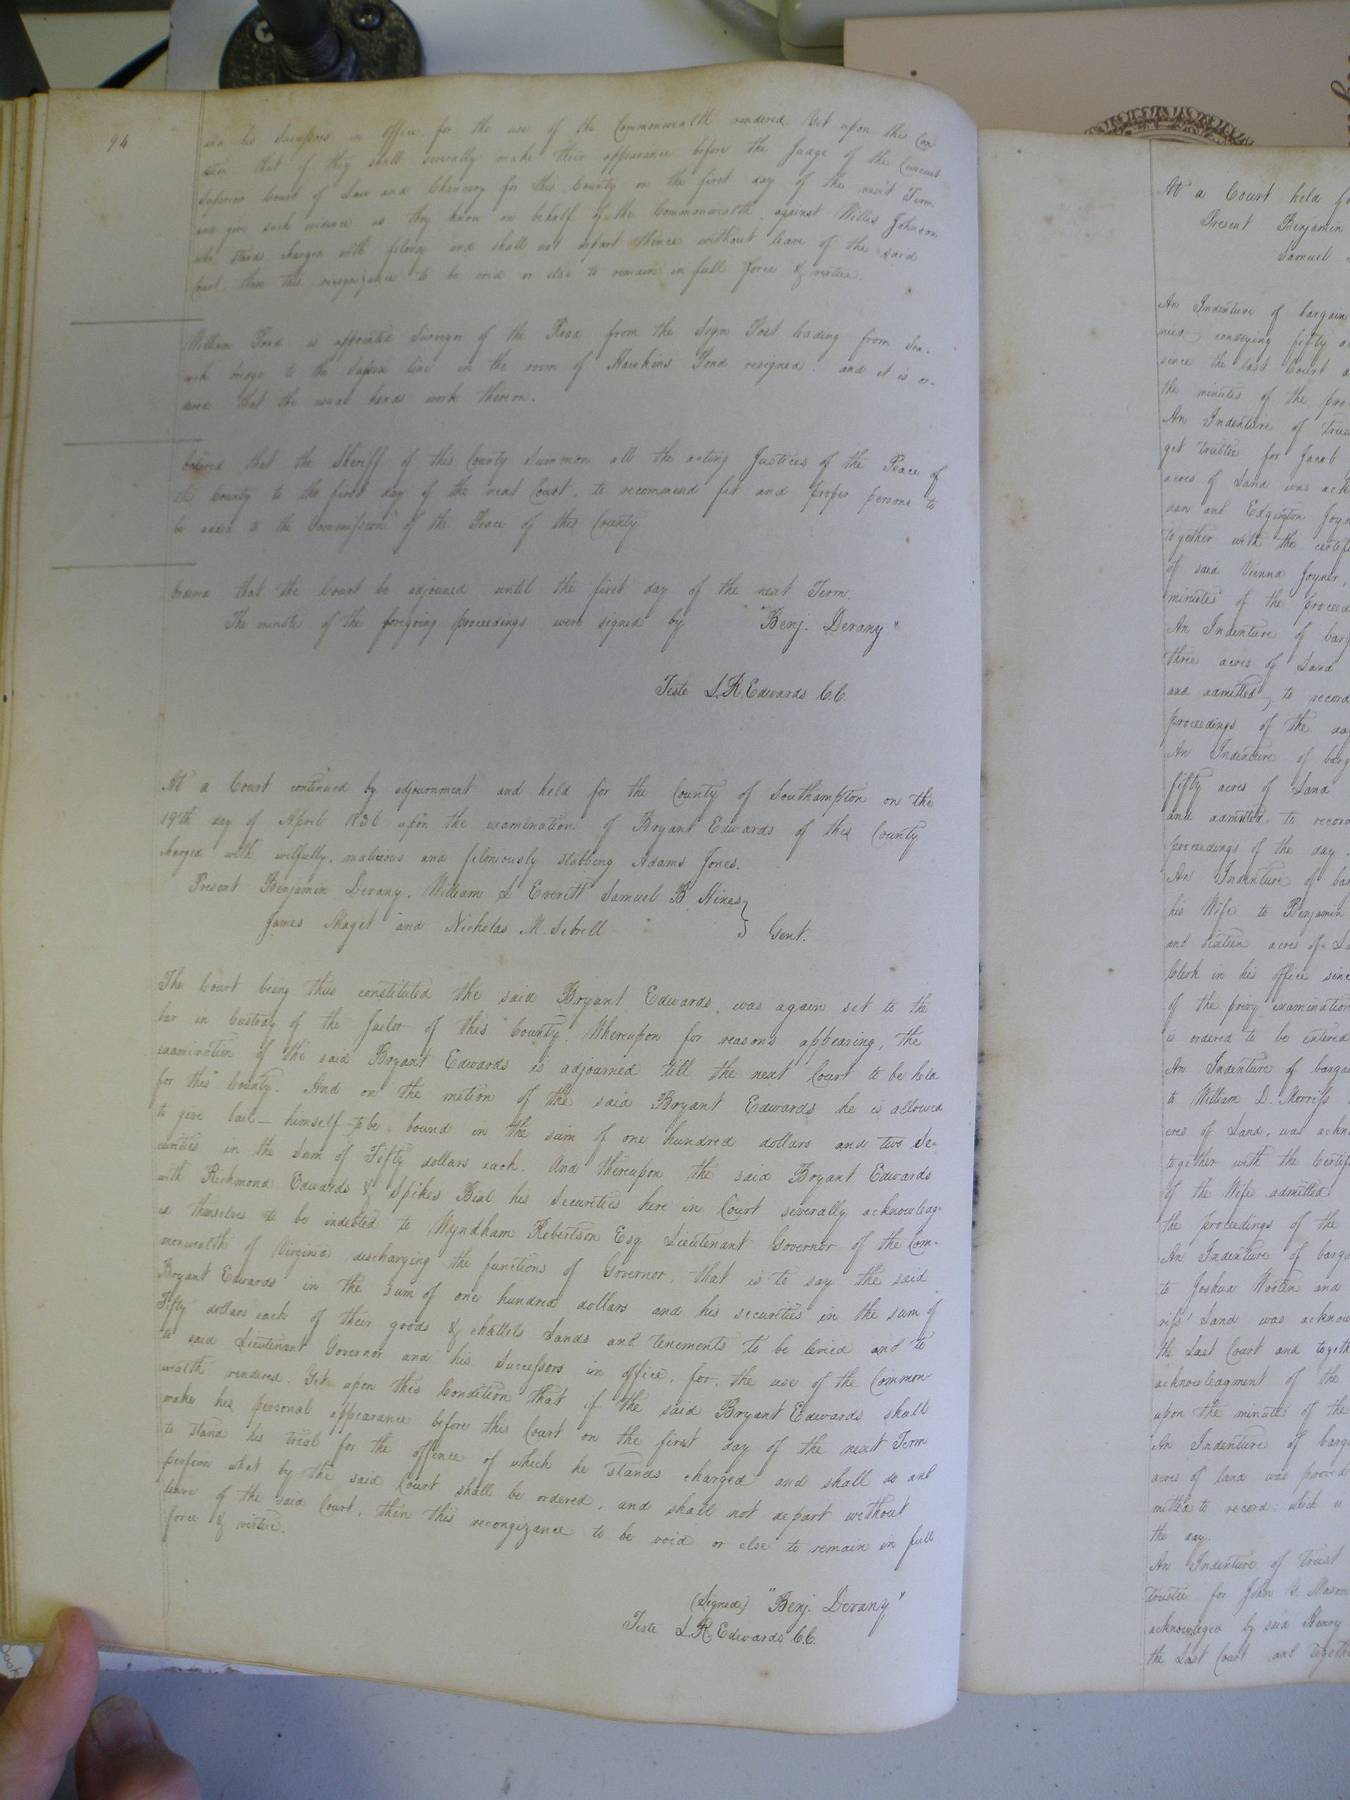 94
and his Successors in office for the use of the Commonwealth rendered Yet upon this Con
dition that if they shall severally make their appearance before the Judge of the Circuit
Superior Court of Law and Chancery for this County on the first day of the next Term
and give such evidence as they know on behalf of the Commonwealth against Willis Johnson
who stands charged with felony and shall not depart thence without leave of the said
Court, then this recognizance to be void or else to remain in full force & virtue.
William Pond is appointed Surveyor of the Road from the Sign Post leading from
to the Sussex line in the room of Hawkins Pond resigned: and it is or-
dered that the usual hands work thereon.
Ordered that the Sheriff of this County Summon all the acting Justices of the Peace of
the County to the first day of the next Court, to recommend fit and proper persons to
be added to the Commission of the Peace of this County
Ordered that the Court be adjourned until the first day of the next Term.
The minutes of the foregoing proceedings were signed by "Benj. Devany"
Teste L. R. Edwards C.C.
At a Court continued by adjournment and held for the County of Southampton on the
19th day of April 1836 upon the examination of Bryant Edwards of this County
charged with wilfully, malicious and feloniously stabbing Adams Jones.
Present Benjamin Devany, William S Everitt Samuel B Hines
James Maget and Nicholas M. Sebrell } Gent.
The Court being thus constituted the said Bryant Edwards, was again set to the
bar in Custody of the Jailor of this County. Whereupon for reasons appearing, the
examination of the said Bryant Edwards is adjourned till the next Court to be held
for this County. And on the motion of the said Bryant Edwards he is allowed
to give bail — himself to be bound in the sum of one hundred dollars and two Se-
curities in the Sum of Fifty dollars each. And thereupon the said Bryant Edwards
with Richmond Edwards & Spikes Beal his Securities here in Court severally acknowledg-
ed themselves to be indebted to Wyndham Robertson Esq Lieutenant Governor of the Com-
monwealth of Virginia discharging the functions of Governor, that is to say the said
Bryant Edwards in the sum of one hundred dollars and his securities in the sum of
Fifty dollars each of their goods & chattels Lands and tenements to be levied and to
to said Lieutenant Governor and his Successors in office, for the use of the Common
wealth rendered. Yet upon this Condition that if the said Bryant Edwards shall
make his personal appearance before this Court on the first day of the next Term
to stand his trial for the offence of which he stands charged and shall do and
perform what by the said Court shall be ordered, and shall not depart without
leave of the said Court, then this recongizance to be void or else to remain in full
force & virtue.
(Signed) "Benj. Devany"
Teste L. R. Edwards C.C.
At a Court held
Present Benjamin
Samuel
An Indenture of bargain
conveying fifty
since the last Court
the minutes of the
An Indenture of
get trustee for Jacob
acres of Land was
and Edgington
together with the
of said Vienna Joyner,
minutes of the
An Indenture of
three acres of Land
and admitted to record
proceedings of the
An Indenture of
fifty acres of Land
and admitted to
proceedings of the day
An Indenture of
his Wife to Benjamin
and Sixteen acres of
Clerk in his office since
of the privy examination
is ordered to be entered
An Indenture of
to William D. Morriss
acres of Land, was
together with the
of the Wife admitted
the proceedings of the
An Indenture of
to Joshua Wooten and
Land was
the Last Court and
acknowledgment of the
upon the minutes of the
An Indenture of
acres of land was
mitted to record: which is
the day.
An Indenture of Trust
trustee for John
acknowledged by said Henry
the Last Court and